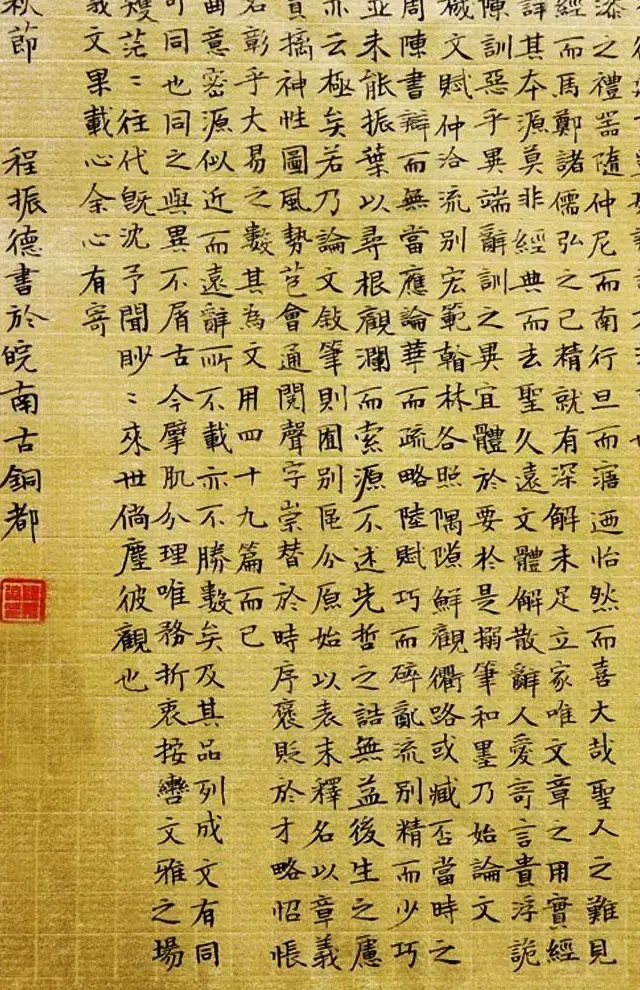 漆之禮器隨仲尼而南行旦而寤迺怡然而喜大哉聖人之難見
經而馬鄭諸儒弘之已精就有深解未足立家唯文章之用實經
詳其本源莫非經典而去聖久遠文體解散辭人愛奇言貴浮詭
陳訓惡乎異端辭訓之異宜體於要於是搦筆和墨乃始論文
文賦仲洽流别宏範翰林各照隅隙鮮觀衢路或臧否當時之
周陳書辯而無當應論華而疏略陸賦巧而碎亂流别精而少巧
並未能振葉以尋根觀瀾而索源不述先哲之誥無益後生之慮
亦云極矣若乃論文敍筆則囿别區分原始以表末釋名以章義
摛神性圖風勢苞會通閲聲字崇替於時序褒貶於才略怊悵
名彰乎大易之數其為文用四十九篇而已
曲意密源似近而遠辭所不載亦不勝數矣及其品列成文有同
可同也同之與異不屑古今擘肌分理唯務折衷按轡文雅之場
茫〻往代既沈予聞眇〻來世倘塵彼觀也
文果載心余心有寄
秋節 程振德書於皖南古銅都